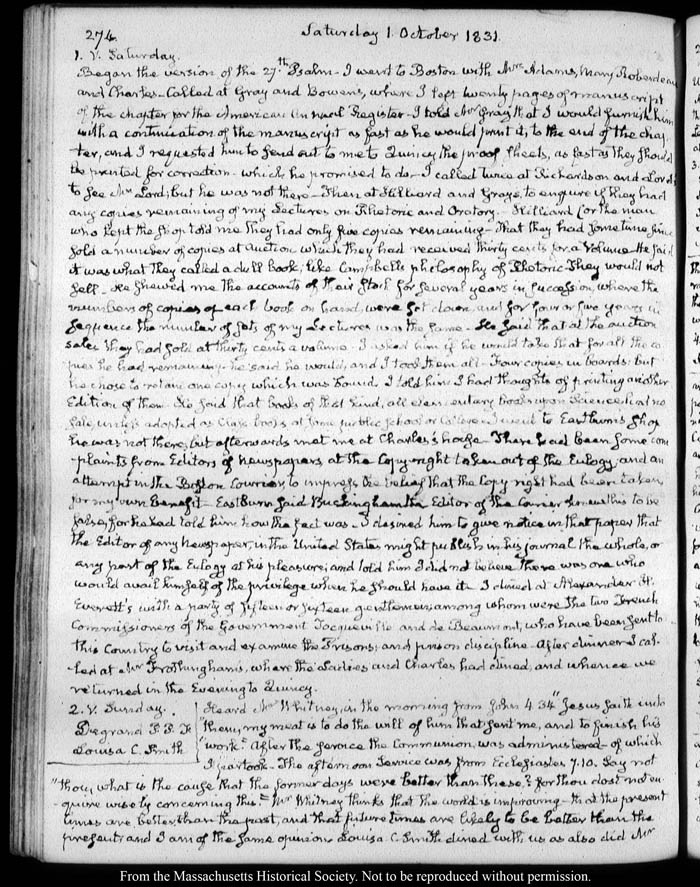 274.
Saturday 1. October 1831.
1. V. Saturday.
Began the version of the 27th Psalm - I went to Boston with Mrs Adams, Mary Roberdeau
and Charles - Called at Gray and Bowens, where I left twenty pages of manuscript
of the chapter for the American Annual Register - I told Mr Gray that I would furnish him
with a continuation of the manuscript as fast as he would print it, to the end of the chap-
ter, and I requested him to send out to me to Quincy the proof sheets, as fast as they should
be printed for correction - which he promised to do - I called twice at Richardson and Lord's
to see Mr Lord; but he was not there - Then at Hilliard and Grays, to enquire if they had
any copies remaining of my Lectures on Rhetoric and Oratory - Hilliard for the man
who kept the shop told me they had only five copies remaining - That they had some time since
sold a number of copies at Auction which they had received thirty cents for a Volume - He said
it was what they called a dull book; like Campbells philosophy of Rhetoric - They would not
sell - He shewed me the accounts of their Stock for several years in succession, where the
numbers of copies of each book on hand, were set down, and for four or five years in
sequence the number of sets of my Lectures was the same - He said that at the auction
sales they had sold at thirty cents a volume - I asked him if he would take that for all the co-
pies he had remaining - he said he would, and I took them all - Four copies in boards: but
he chose to retain one copy which was bound - I told him I had thoughts of printing another
Edition of them - He said that books of that kind, all elementary books upon Science had no
sale, unless adopted as Class books at some public school or College - I went to Eastburn's shop
he was not there; but afterwards met me at Charles's house - There had been some com-
plaints from Editors of newspapers at the Copy-right taken out of the Eulogy, and an
attempt in the Boston Courier, to impress the belief that the Copy right had been taken,
for my own benefit - Eastburn said Buckingham the Editor of the Courier knew this to be
false, for he had told him how the fact was - I desired him to give notice in that paper that
the Editor of any Newspaper, in the United States might publish in his journal the whole, or
any part of the Eulogy at his pleasure; and told him I did not believe there was one who
would avail himself of the privilege when he should have it - I dined at Alexander H.
Everett's with a party of fifteen or sixteen gentlemen; among whom were the two French
Commissioners of the Government Tocqueville and de Beaumont, who have been sent to
this Country to visit and examine the Prisons; and prison discipline - After dinner I cal-
led at Mr Frothingham's, where the Ladies and Charles had dined, and whence we
returned in the Evening to Quincy.
2. V. Sunday.
Degrand P. P. F.
Louisa C. Smith
Heard Mr Whitney, in the morning from John 4. 34 "Jesus saith unto
"them, my meat is to do the will of him that sent me, and to finish his
"work." After the service the Communion, was administered - of which
I partook - The afternoon service was from Ecclesiastes 7. 10. Say not
"thou, what is the cause that the former days were better than these? for thou dost not en-
quire wisely concerning this" Mr Whitney thinks that the world is improving - that the present
times are better than the past, and that future times are likely to be better than the
present; and I am of the same opinion. Louisa C. Smith dined with us as also did Mr
From the Massachusetts Historical Society. Not to be reproduced without permission.